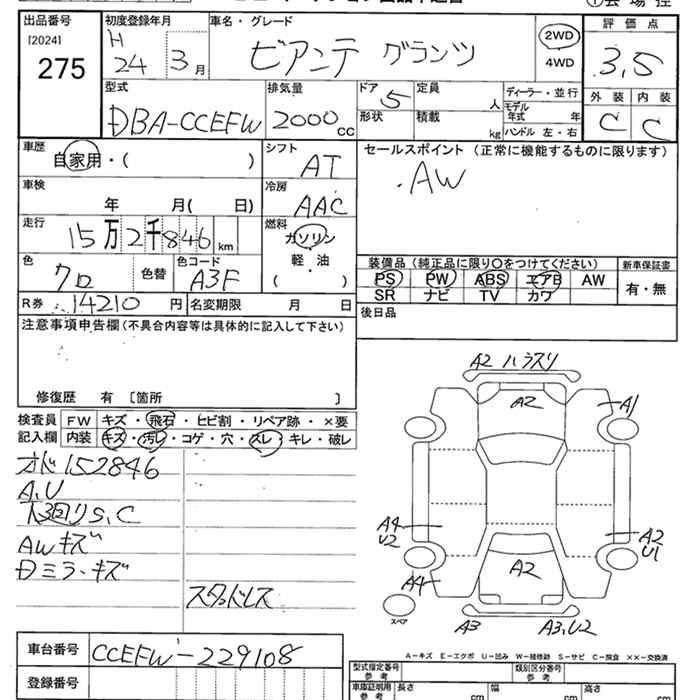 出品番号
[2024]
275
初度登録年月
H
24年 3月
車名・グレード
ビアンテ グランツ
2WD
4WD
評価点
3,5
外装 内装
C C
型式
DBA-CCEFW
排気量
2000cc
ドア
5
形状
定員
人
積載
kg
ディーラー・並行
モデル
年式 年
ハンドル 左・右
車歴
自家用・( )
車検
年 月( 日)
走行
15万2千846km
色
クロ
色替
色コード
A3F
シフト
AT
冷房
AAC
燃料
ガソリン
軽・油
( ・ )
R券 14210円
名変期限 月 日
セールスポイント (正常に機能するものに限ります)
・AW
装備品 (純正品に限り〇をつけてください)
PS PW ABS エアB AW
SR ナビ TV カワ
新車保証書
有・無
後日品
注意事項申告欄(不具合内容等は具体的に記入して下さい)
修復歴 有 〔箇所 〕
検査員
記入欄
FW キズ・飛石・ヒビ割・リペア跡・×要
内装 キズ・汚レ・コゲ・穴・スレ・キレ・破レ
オド152846
A,U
下回りS,C
AWキズ
Dミラ-キズ
スタッドレス
A2 ハラスリ
A2
A1
A4
U2
A2
U1
A4
A2
スペア
A3
A3,U2
A−キズ E−エクボ U−凹み W−補修跡 S−サビ C−腐食 ××−交換済
車台番号
CCEFW-229108
登録番号
型式指定番号
参考
類別区分番号
参考
車庫証明用
参考
長さ cm
幅 cm
高さ cm